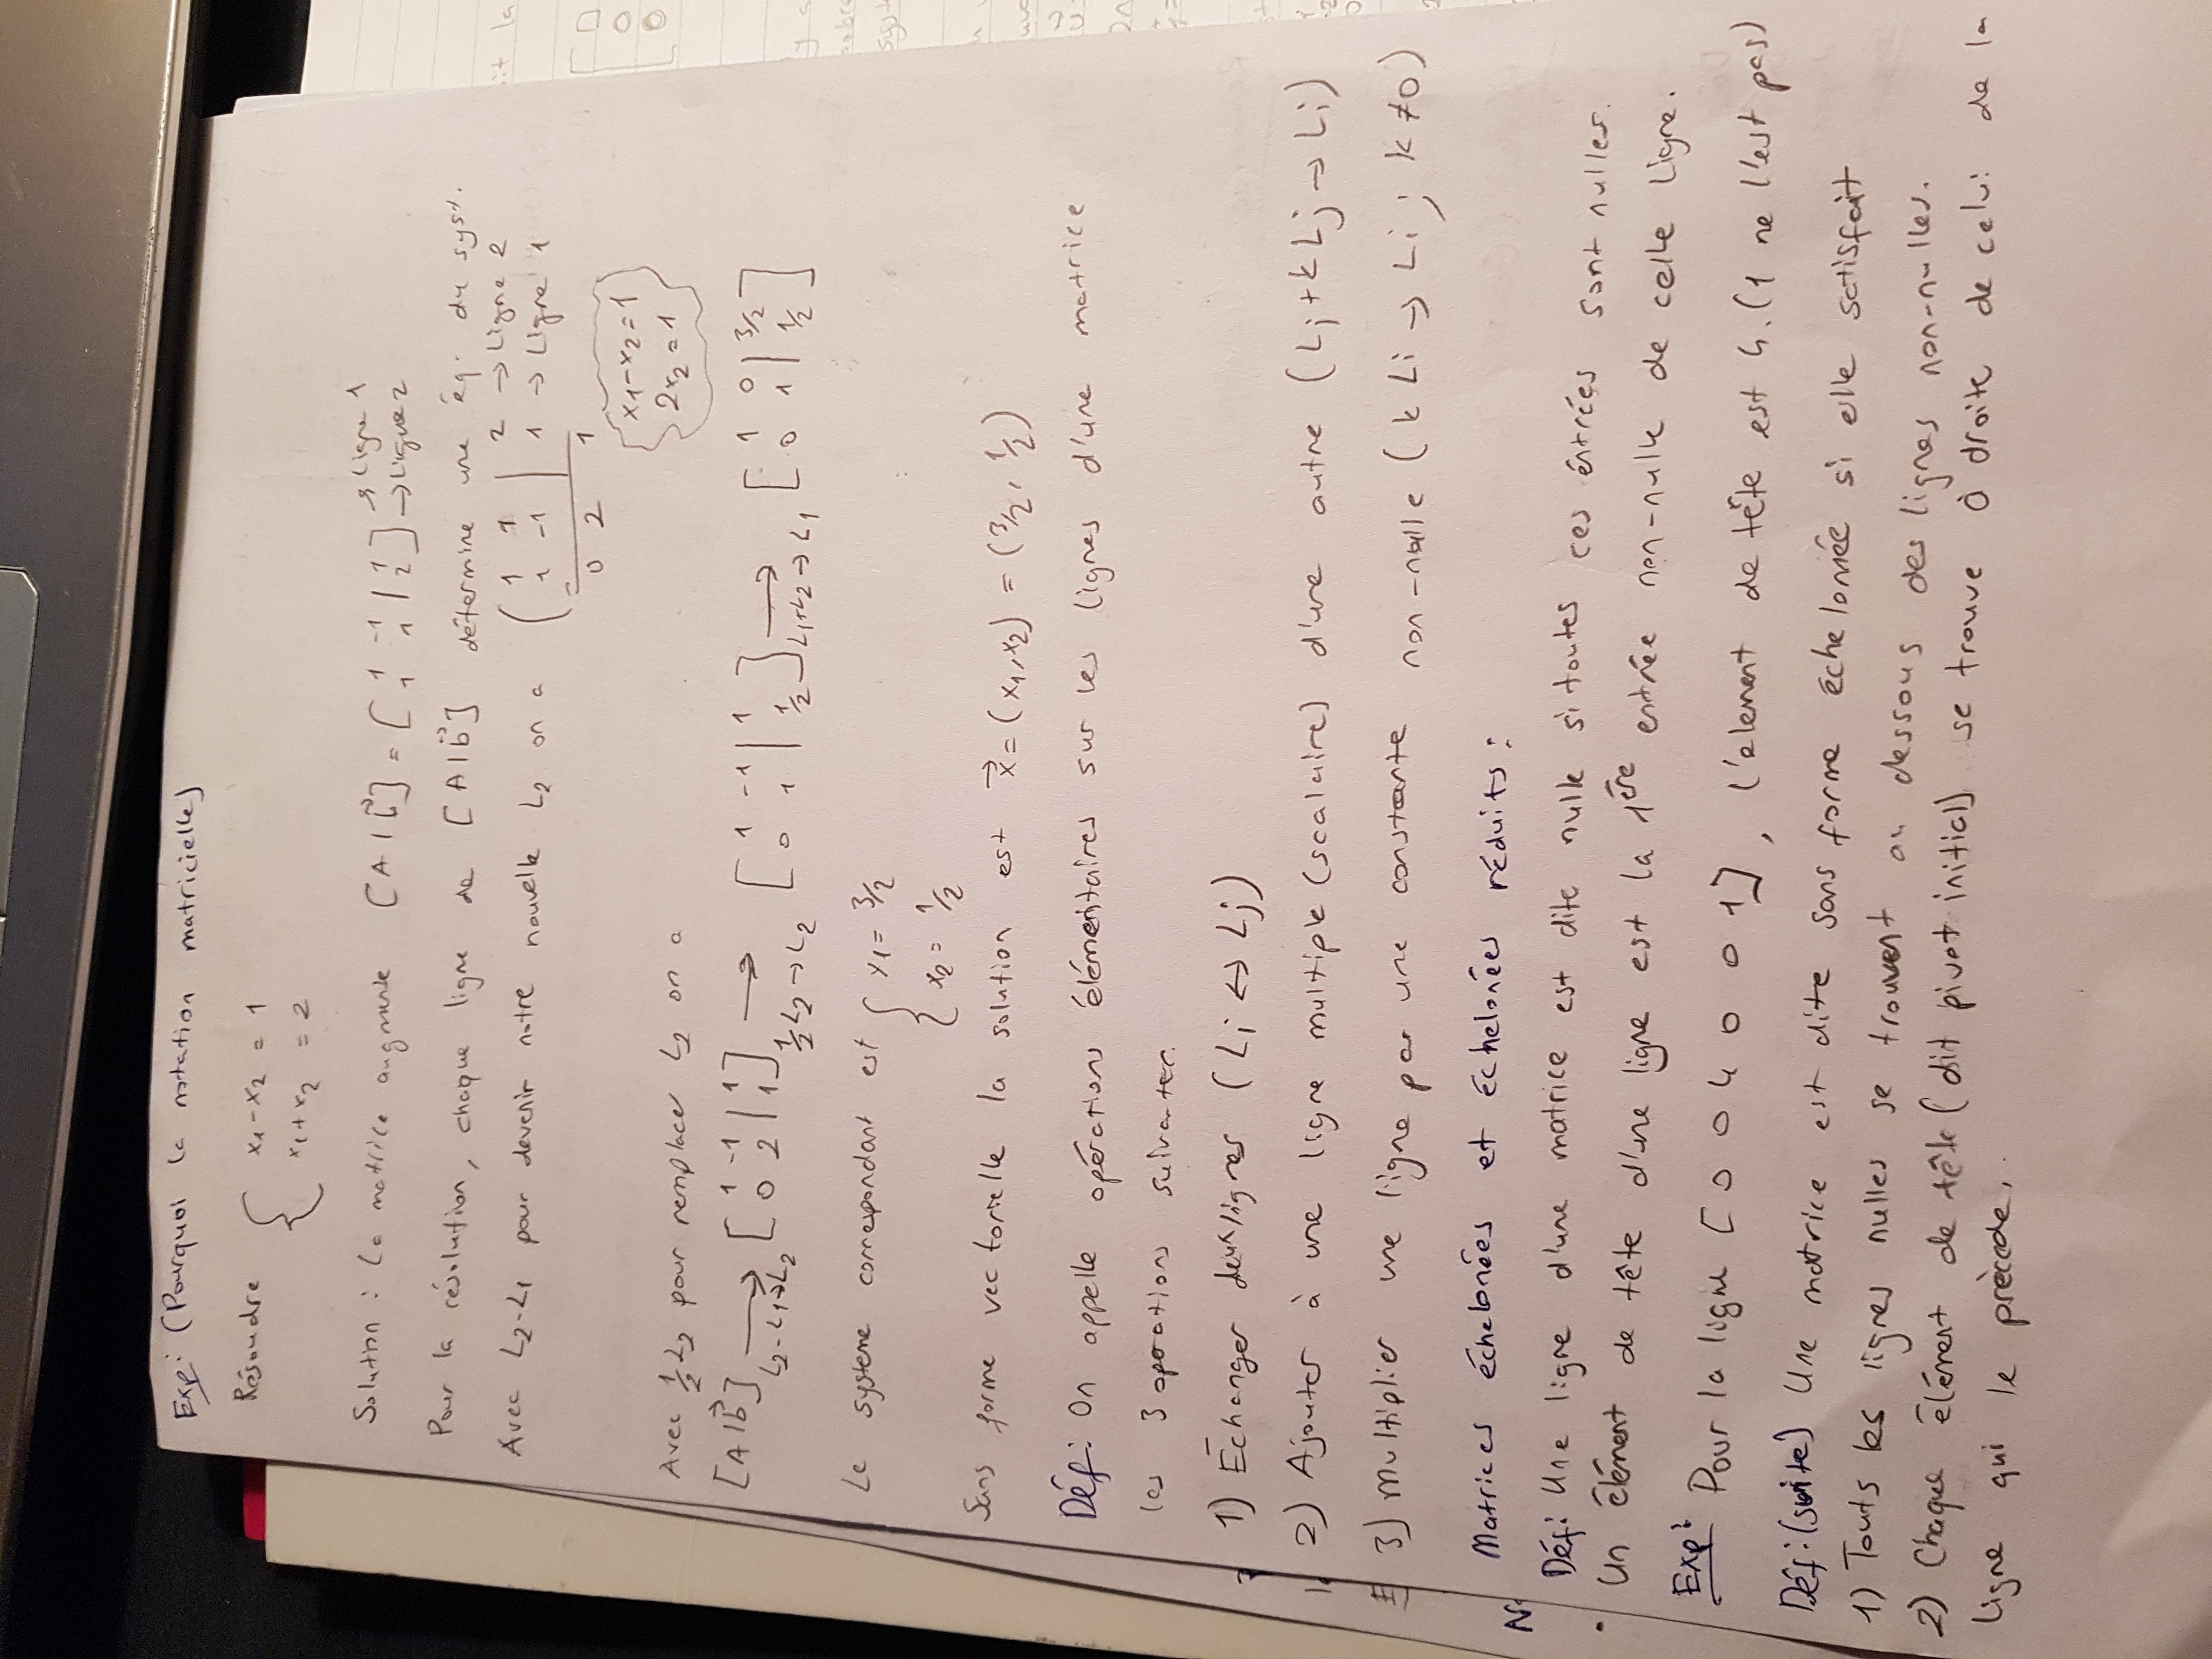 Exp: (Pourquoi la notation matricielle)
Résoudre { x1 - x2 = 1
x1 + x2 = 2
Solution : La matrice augmenté [A|b] = [1 -1 | 1] → Ligne 1
[1 1 | 2] → Ligne 2
Pour la résolution, chaque ligne de [A|b] détermine une éq. du syst.
Avec L2-L1 pour devenir notre nouvelle L2 on a (1 1 | 2 → Ligne 2
- 1 -1 | 1 → Ligne 1
0 2 1
{ x1 - x2 = 1
2x2 = 1 }
Avec 1/2 L2 pour remplacer L2 on a
[A|b] → L2-L1→L2 [1 -1 | 1] → 1/2 L2→L2 [1 -1 | 1] → L1+L2→L1 [1 0 | 3/2]
[0 2 | 1] [0 1 | 1/2] [0 1 | 1/2]
Le système correspondant est { x1 = 3/2
x2 = 1/2
Sous forme vectorielle la solution est x⃗ = (x1, x2) = (3/2, 1/2)
Déf: On appelle opérations élémentaires sur les lignes d'une matrice
les 3 oporations suivantes.
1) Échanger deux lignes (Li ↔ Lj)
2) Ajouter à une ligne multiple (scalaire) d'une autre (Li + kLj → Li)
3) multiplier une ligne par une constante non-nulle (kLi → Li ; k ≠ 0)
Matrices échelonées et échelonées réduits :
Déf: Une ligne d'une matrice est dite nulle si toutes ces éntrées sont nulles.
• Un élément de tête d'une ligne est la 1ère entrée non-nulle de celle ligne.
Exp: Pour la ligne [0 0 4 0 0 1], l'element de tête est 4. (1 ne l'est pas)
Déf: (suite) Une matrice est dite sous forme échelonée si elle satisfait
1) Touts les lignes nulles se trouvent au dessous des lignes non-nulles.
2) Chaque élément de tête (dit pivot initial) se trouve à droite de celui de la
ligne qui le précède.